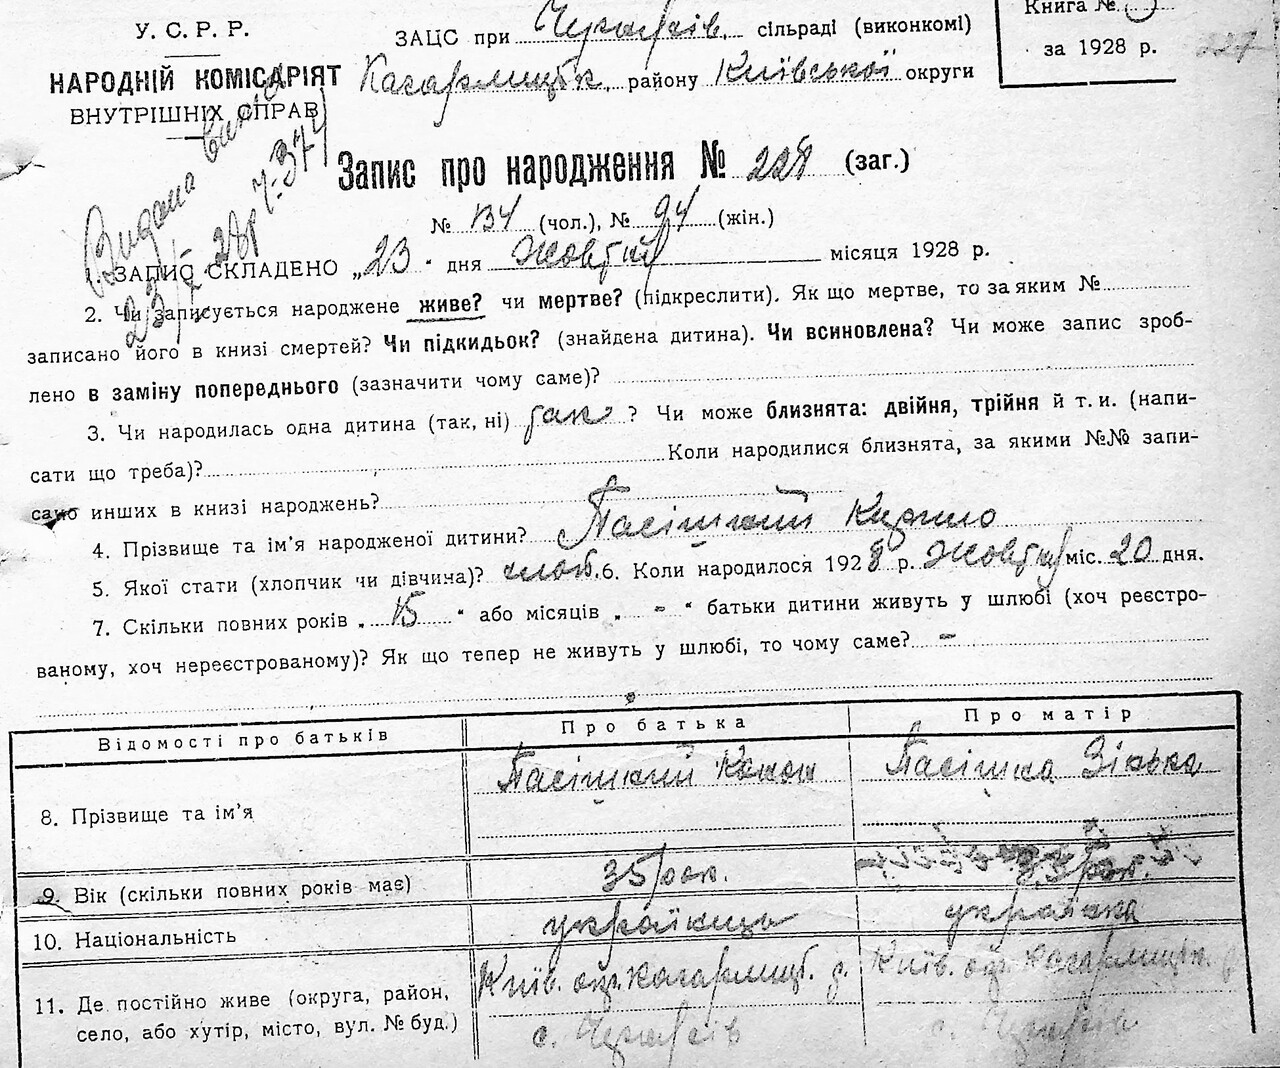 У. С. Р. Р.
НАРОДНІЙ КОМІСАРІЯТ
ВНУТРІШНІХ СПРАВ
ЗАЦС при сільраді (виконкомі)
Кагарлицьк. району Київської округи
Книга №
за 1928 р.
227
Видана випис
23/ 37
Запис про народження № 228 (заг.)
№ 134 (чол.), № 94 (жін.)
1. ЗАПИС СКЛАДЕНО „23“ дня Жовтня місяця 1928 р.
2. Чи записується народжене живе? чи мертве? (підкреслити). Як що мертве, то за яким №
записано його в книзі смертей? Чи підкидьок? (знайдена дитина). Чи всиновлена? Чи може запис зроб-
лено в заміну попереднього (зазначити чому саме)?
3. Чи народилась одна дитина (так, ні) так ? Чи може близнята: двійня, трійня й т. и. (напи-
сати що треба)? Коли народилися близнята, за якими №№ запи-
сано инших в книзі народжень?
4. Прізвище та ім’я народженої дитини? Пасіцький Кирило
5. Якої статі (хлопчик чи дівчина)? хлоп. 6. Коли народилося 1928 р. Жовтня міс. 20 дня.
7. Скільки повних років „ 15 “ або місяців „ - “ батьки дитини живуть у шлюбі (хоч реєстро-
ваному, хоч нереєстрованому)? Як що тепер не живуть у шлюбі, то чому саме? -
Відомості про батьків Про батька Про матір
8. Прізвище та ім’я Пасіцький Конон Пасіцька Зінька
9. Вік (скільки повних років має) 35 рок. 33 рок.
10. Національність українець українка
11. Де постійно живе (округа, район, Київ. окр. Кагарлицьк. р. Київ. окр. Кагарлицьк. р.
село, або хутір, місто, вул. № буд.) с. с.